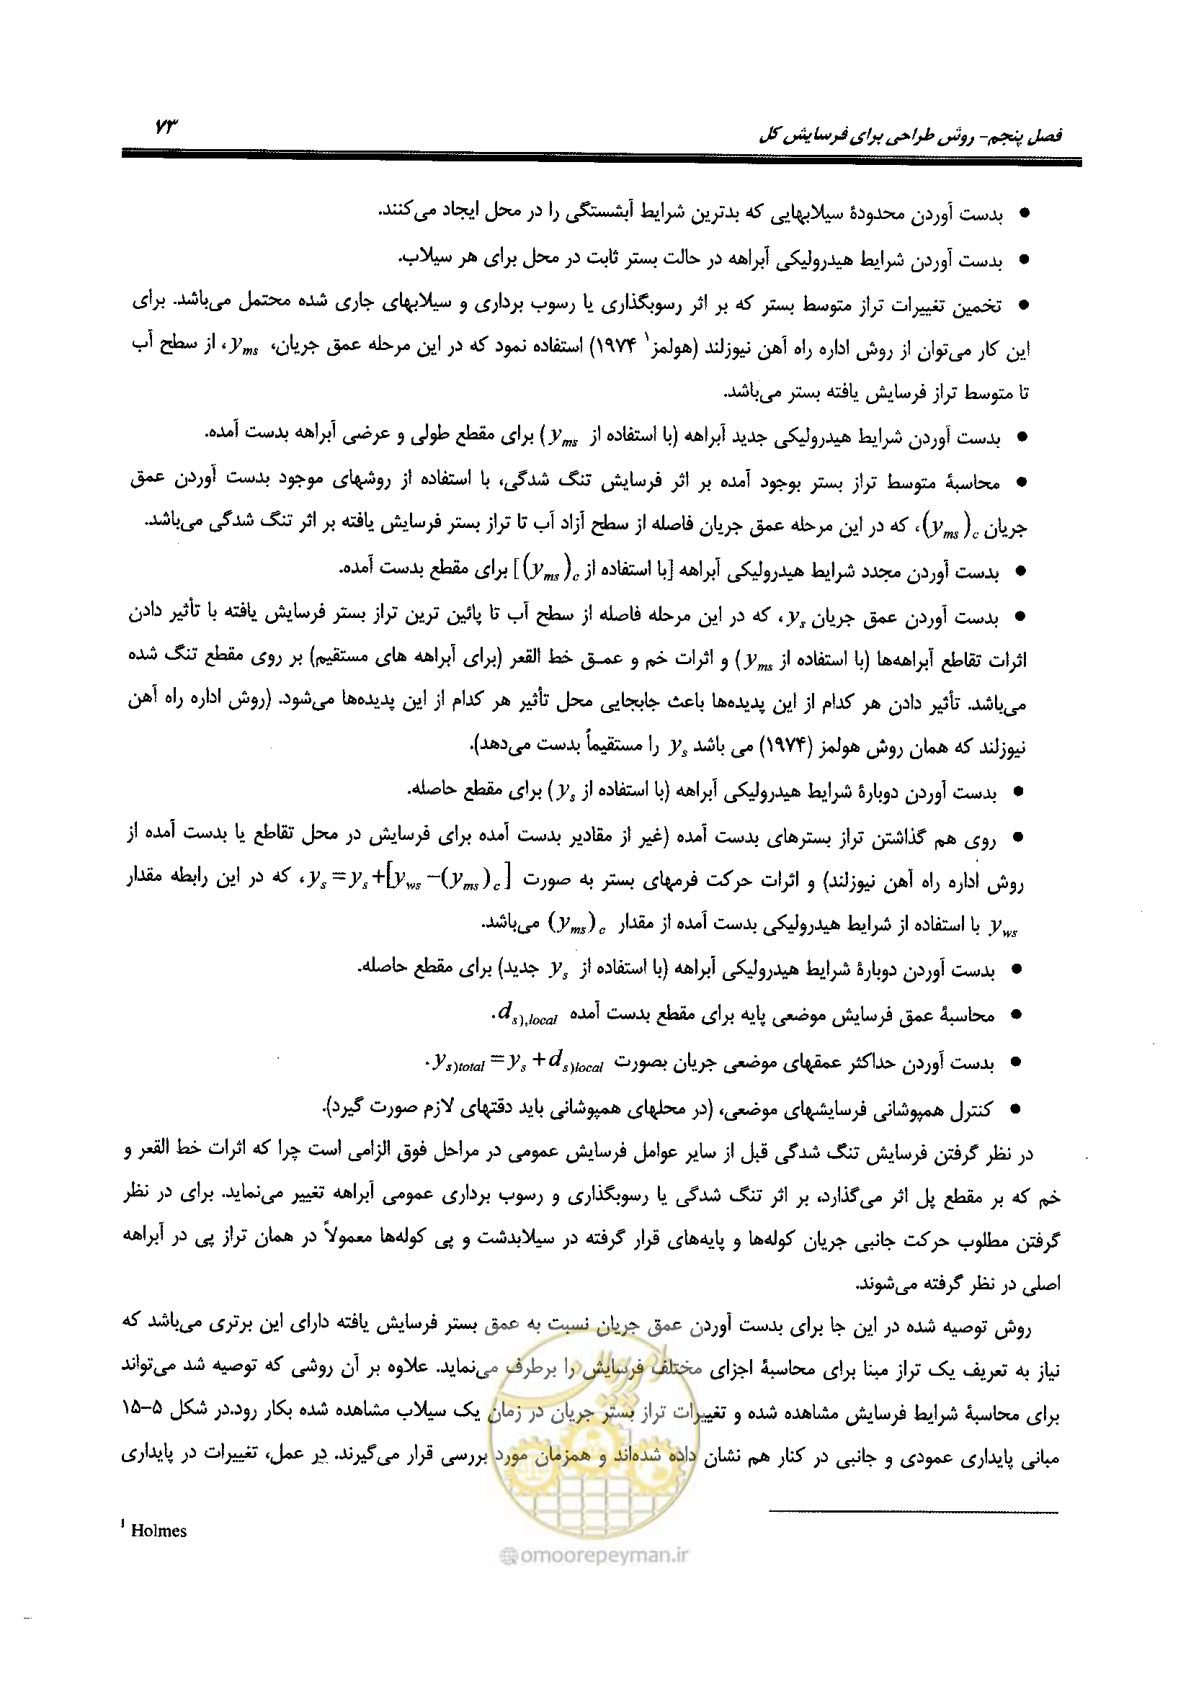 فصل پنجم- روش طراحی برای فرسایش کل
۷۳
● بدست آوردن محدودهٔ سیلابهایی که بدترین شرایط آبشستگی را در محل ایجاد می‌کنند.
● بدست آوردن شرایط هیدرولیکی آبراهه در حالت بستر ثابت در محل برای هر سیلاب.
● تخمین تغییرات تراز متوسط بستر که بر اثر رسوبگذاری یا رسوب برداری و سیلابهای جاری شده محتمل می‌باشد. برای
این کار می‌توان از روش اداره راه آهن نیوزلند (هولمز¹ ۱۹۷۴) استفاده نمود که در این مرحله عمق جریان، y_ms، از سطح آب
تا متوسط تراز فرسایش یافته بستر می‌باشد.
● بدست آوردن شرایط هیدرولیکی جدید آبراهه (با استفاده از y_ms) برای مقطع طولی و عرضی آبراهه بدست آمده.
● محاسبهٔ متوسط تراز بستر بوجود آمده بر اثر فرسایش تنگ شدگی، با استفاده از روشهای موجود بدست آوردن عمق
جریان (y_ms)_c، که در این مرحله عمق جریان فاصله از سطح آزاد آب تا تراز بستر فرسایش یافته بر اثر تنگ شدگی می‌باشد.
● بدست آوردن مجدد شرایط هیدرولیکی آبراهه [با استفاده از (y_ms)_c] برای مقطع بدست آمده.
● بدست آوردن عمق جریان y_s، که در این مرحله فاصله از سطح آب تا پائین ترین تراز بستر فرسایش یافته با تأثیر دادن
اثرات تقاطع آبراهه‌ها (با استفاده از y_ms) و اثرات خم و عمق خط القعر (برای آبراهه های مستقیم) بر روی مقطع تنگ شده
می‌باشد. تأثیر دادن هر کدام از این پدیده‌ها باعث جابجایی محل تأثیر هر کدام از این پدیده‌ها می‌شود. (روش اداره راه آهن
نیوزلند که همان روش هولمز (۱۹۷۴) می باشد y_s را مستقیماً بدست می‌دهد).
● بدست آوردن دوبارهٔ شرایط هیدرولیکی آبراهه (با استفاده از y_s) برای مقطع حاصله.
● روی هم گذاشتن تراز بسترهای بدست آمده (غیر از مقادیر بدست آمده برای فرسایش در محل تقاطع یا بدست آمده از
روش اداره راه آهن نیوزلند) و اثرات حرکت فرمهای بستر به صورت y_s=y_s+[y_ws-(y_ms)_c]، که در این رابطه مقدار
y_ws با استفاده از شرایط هیدرولیکی بدست آمده از مقدار (y_ms)_c می‌باشد.
● بدست آوردن دوبارهٔ شرایط هیدرولیکی آبراهه (با استفاده از y_s جدید) برای مقطع حاصله.
● محاسبهٔ عمق فرسایش موضعی پایه برای مقطع بدست آمده d_s),local.
● بدست آوردن حداکثر عمقهای موضعی جریان بصورت y_s)total=y_s+d_s)local.
● کنترل همپوشانی فرسایشهای موضعی، (در محلهای همپوشانی باید دقتهای لازم صورت گیرد).
در نظر گرفتن فرسایش تنگ شدگی قبل از سایر عوامل فرسایش عمومی در مراحل فوق الزامی است چرا که اثرات خط القعر و
خم که بر مقطع پل اثر می‌گذارد، بر اثر تنگ شدگی یا رسوبگذاری و رسوب برداری عمومی آبراهه تغییر می‌نماید. برای در نظر
گرفتن مطلوب حرکت جانبی جریان کوله‌ها و پایه‌های قرار گرفته در سیلابدشت و پی کوله‌ها معمولاً در همان تراز پی در آبراهه
اصلی در نظر گرفته می‌شوند.
روش توصیه شده در این جا برای بدست آوردن عمق جریان نسبت به عمق بستر فرسایش یافته دارای این برتری می‌باشد که
نیاز به تعریف یک تراز مبنا برای محاسبهٔ اجزای مختلف فرسایش را برطرف می‌نماید. علاوه بر آن روشی که توصیه شد می‌تواند
برای محاسبهٔ شرایط فرسایش مشاهده شده و تغییرات تراز بستر جریان در زمان یک سیلاب مشاهده شده بکار رود.در شکل ۵-۱۵
مبانی پایداری عمودی و جانبی در کنار هم نشان داده شده‌اند و همزمان مورد بررسی قرار می‌گیرند. در عمل، تغییرات در پایداری
¹ Holmes
@omoorepeyman.ir